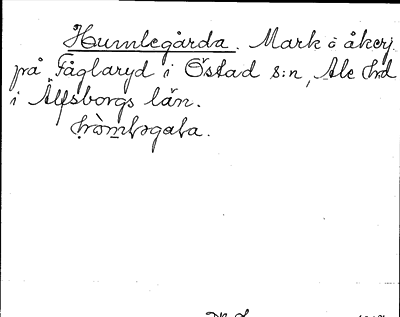 Humlegårda. Mark o åkerj.
på Fåglaryd i Östad s:n, Ale hrd
i Älfsborgs län.